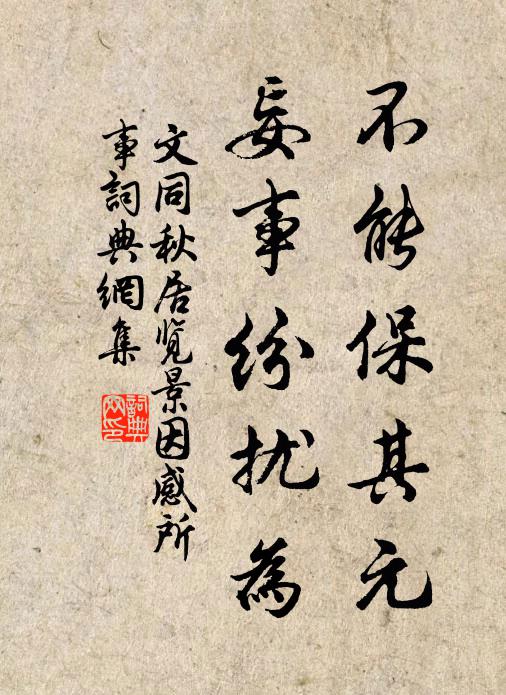 不能保其元
妄事纷扰為
文同秋居览景因感所
事詞典網集
詞典网印